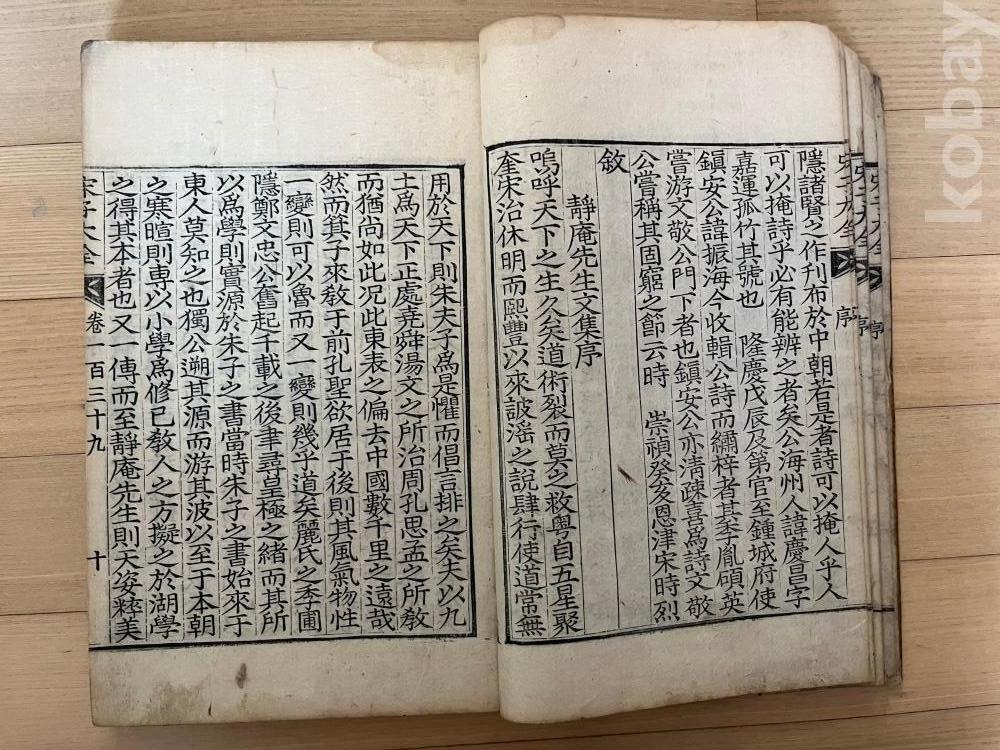 隱諸賢之作刊布於中 朝若是者詩可以掩人乎人
可以掩詩乎必有能辨之者矣公海州人諱慶昌字
嘉運孤竹其號也 隆慶戊辰及第官至鍾城府使
鎮安公諱振海今收輯公詩而繡梓者其至胤碩英
嘗游文敬公門下者也鎮安公亦清疎喜爲詩文敬
公嘗稱其固窮之節云時 崇禎癸亥恩津宋時烈
敘
靜庵先生文集序
嗚呼天下之生久矣道術裂而莫之救粤自五星聚
奎宋治休明而熙豐以來詖滛之說肆行使道常無
用於天下則朱夫子爲是懼而倡言排之矣夫以九
土爲天下正處堯舜湯文之所治周孔思孟之所教
而猶尚如此况此東表之偏去中國數千里之遠哉
然而箕子來教于前孔聖欲居于後則其風氣物性
一變則可以魯而又一變則幾乎道矣麗氏之季圃
隱鄭文忠公奮起千載之後筆尋皇極之緒而其所
以爲學則實源於朱子之書當時朱子之書始來于
東人莫知之也獨公遡其源而游其波以至于本朝
之寒暄則專以小學爲修已敎人之方擬之於湖學
之得其本者也又一傳而至靜庵先生則天姿粹美
宋子大全 卷一百三十九 十
序
序
序
kobay